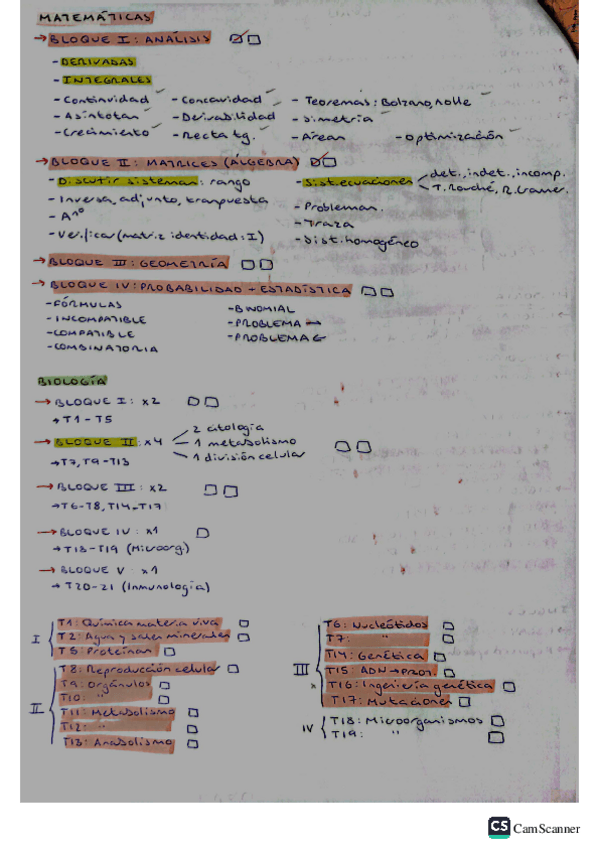 MATEMÁTICAS
→ BLOQUE I: ANÁLISIS
- DERIVADAS
- INTEGRALES
- Continuidad - Concavidad - Teoremas: Bolzano, rolle
- Asíntotas - Derivabilidad - Simetría
- Crecimiento - Recta tg. - Áreas - Optimización
→ BLOQUE II: MATRICES (ÁLGEBRA)
- Discutir sistemas: rango - Sist. ecuaciones det., indet., incomp.
T. Rouché, R. Cramer.
- Inversa, adjunto, transpuesta - Problemas
- A¹⁰ - Traza
- Verificar (matriz identidad: I) - Sist. homogéneo
→ BLOQUE III: GEOMETRÍA
→ BLOQUE IV: PROBABILIDAD + ESTADÍSTICA
- FÓRMULAS - BINOMIAL
- INCOMPATIBLE - PROBLEMA →
- COMPATIBLE - PROBLEMA ←
- COMBINATORIA
BIOLOGÍA
→ BLOQUE I: x2
→ T1 - T5
→ BLOQUE II: x4 2 citología
1 metabolismo
1 división celular
→ T7, T9 - T13
→ BLOQUE III: x2
→ T6 - T8, T14 - T17
→ BLOQUE IV: x1
→ T18 - T19 (Microorg.)
→ BLOQUE V: x1
→ T20 - 21 (Inmunología)
I
T1: Química materia viva
T2: Agua y sales minerales
T5: Proteínas
II
T8: Reproducción celular
T9: Orgánulos
T10: "
T11: Metabolismo
T12: "
T13: Anabolismo
III
T6: Nucleótidos
T7: "
T14: Genética
T15: ADN → PROT.
x T16: Ingeniería genética
T17: Mutaciones
IV
T18: Microorganismos
T19: "
CS CamScanner